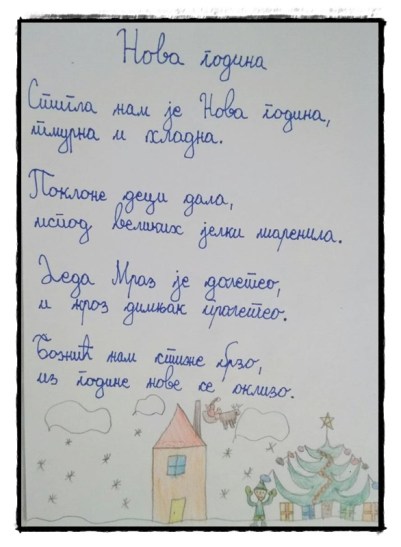 Нова година
Стигла нам је Нова година,
тмурна и хладна.
Поклоне деци дала,
испод великих јелки шаренила.
Деда Мраз је долетео,
и кроз димњак пролетео.
Божић нам стиже брзо,
из године нове се оклизо.